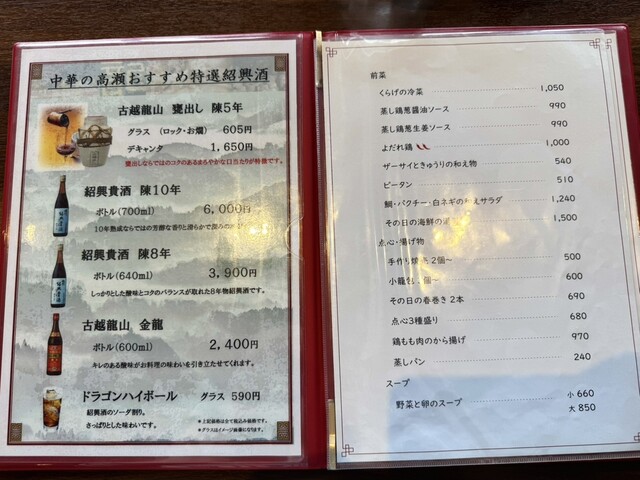 中華の高瀬おすすめ特選紹興酒
古越龍山 甕出し 陳5年
グラス (ロック・お燗) 605円
デキャンタ 1,650円
甕出しならではのコクのあるまろやかな口当たりが特徴です。
紹興貴酒 陳10年
ボトル(700ml) 6,000円
10年熟成ならではの芳醇な香りと滑らかで深みの
紹興貴酒 陳8年
ボトル(640ml) 3,900円
しっかりとした酸味とコクのバランスが取れた8年物紹興酒です。
古越龍山 金龍
ボトル(600ml) 2,400円
キレのある酸味がお料理の味わいを引き立たせてくれます。
ドラゴンハイボール グラス 590円
紹興酒のソーダ割り。
さっぱりとした味わいです。
*上記価格は全て税込み価格です。
*グラスはイメージ画像になります。
前菜
くらげの冷菜 1,050
蒸し鶏葱醤油ソース 990
蒸し鶏葱生姜ソース 990
よだれ鶏 1,000
ザーサイときゅうりの和え物 540
ピータン 510
鯛・パクチー・白ネギの和えサラダ 1,240
その日の海鮮の 1,500
点心・揚げ物
手作り焼 2個～ 500
小籠包 2個～ 600
その日の春巻き 2本 690
点心3種盛り 680
鶏もも肉のから揚げ 970
蒸しパン 240
スープ
野菜と卵のスープ 小 660
大 850